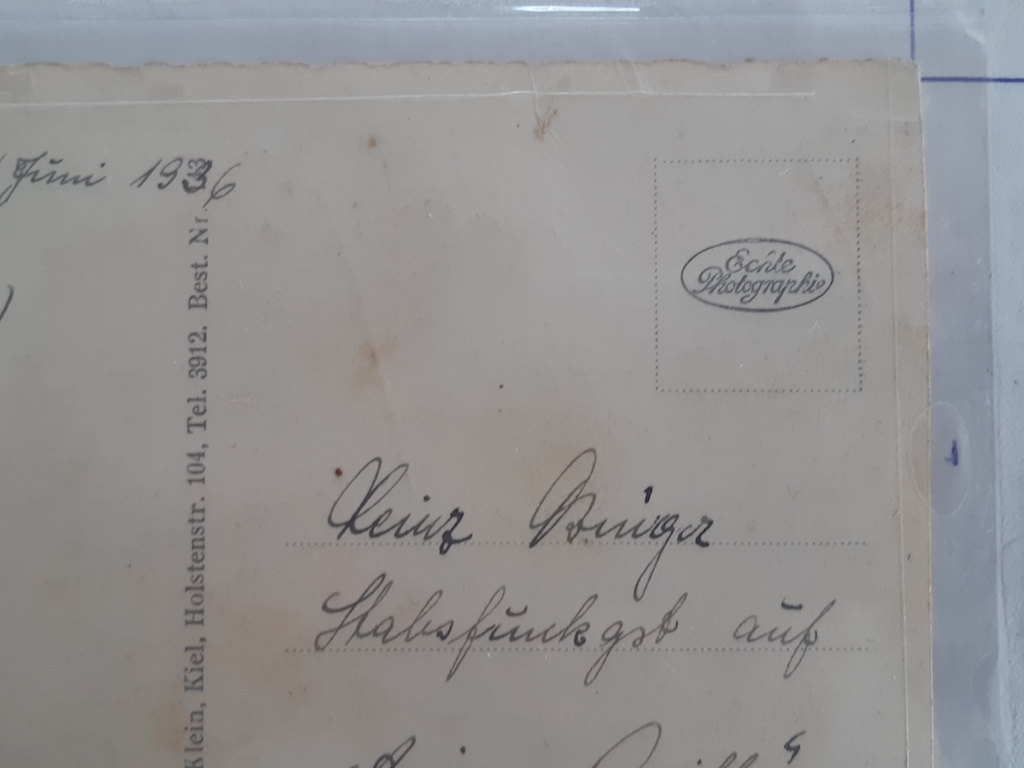 Juni 1936
Klein, Kiel, Holstenstr. 104, Tel. 3912. Best. Nr.
Echte
Photographie
Heinz
Stabsfunkgst auf